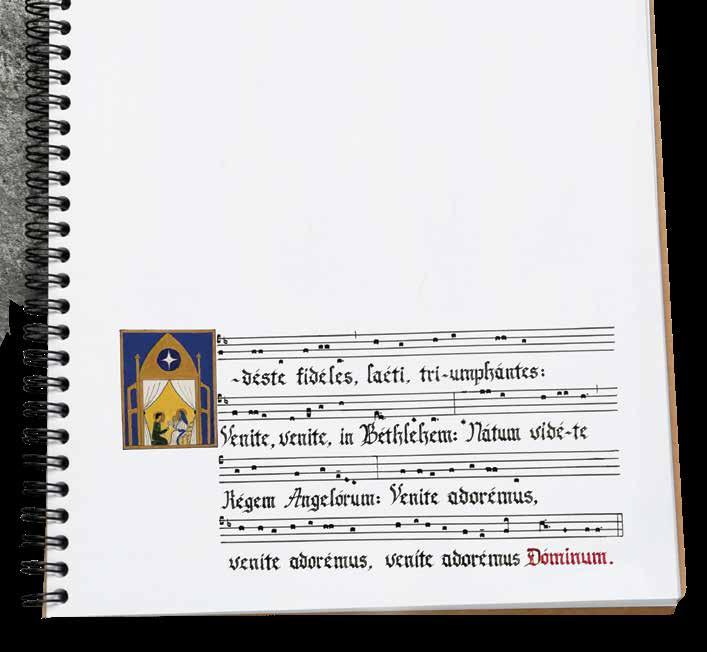 -déste fidéles, laéti, tri-umphántes:
Veníte, veníte, in Béthlehem: Nátum vidé-te
Régem Angelórum: Veníte adorémus,
veníte adorémus, veníte adorémus Dóminum.